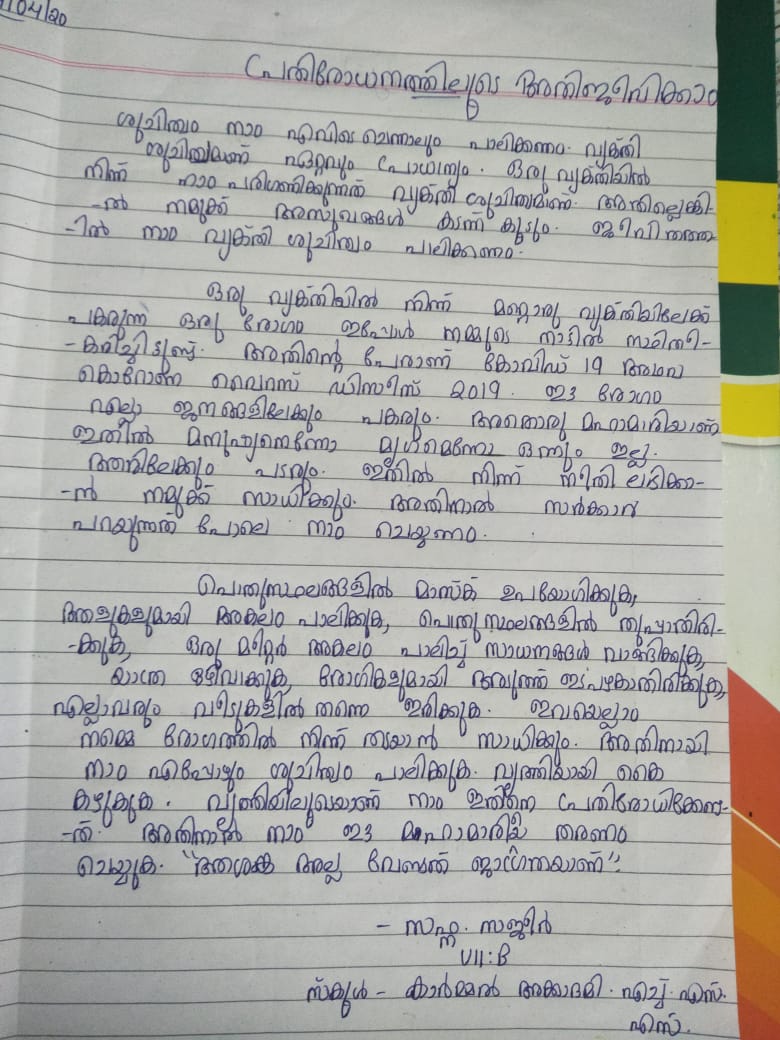 /04/20
പ്രതിരോധനത്തിലൂടെ അതിജീവിക്കാം
ശുചിത്വം നാം എവിടെ ചെന്നാലും പാലിക്കണം. വ്യക്തി
ശുചിത്വമാണ് ഏറ്റവും പ്രാധാന്യം. ഒരു വ്യക്തിയിൽ
നിന്ന് നാം പരിഗണിക്കുന്നത് വ്യക്തി ശുചിത്വമാണ്. അതില്ലെങ്കി-
-ൽ നമുക്ക് അസുഖങ്ങൾ കടന്ന് കൂടും. ജീവിതത്തി-
-ൽ നാം വ്യക്തി ശുചിത്വം പാലിക്കണം.
ഒരു വ്യക്തിയിൽ നിന്ന് മറ്റൊരു വ്യക്തിയിലേക്ക്
പകരുന്ന ഒരു രോഗം ഇപ്പോൾ നമ്മുടെ നാട്ടിൽ സ്ഥിതി-
-കരിച്ചിട്ടുണ്ട്. അതിന്റെ പേരാണ് കോവിഡ് 19 അഥവ
കൊറോണ വൈറസ് ഡിസീസ് 2019. ഈ രോഗം
എല്ലാ ജനങ്ങളിലേക്കും പകരും. അതൊരു മഹാമാരിയാണ്
ഇതിൽ മനുഷ്യനെന്നോ മൃഗമെന്നോ ഒന്നും ഇല്ല.
അന്യിലേക്കും പടരും. ഇതിൽ നിന്ന് നീതി ലഭിക്കാ-
-ൻ നമുക്ക് സാധിക്കും. അതിനാൽ സർക്കാർ
പറയുന്നത് പോലെ നാം ചെയ്യണം.
പൊതുസ്ഥലങ്ങളിൽ മാസ്ക് ഉപയോഗിക്കുക,
ആളുകളുമായി അകലം പാലിക്കുക, പൊതു സ്ഥലങ്ങളിൽ തുപ്പാതിരി-
-ക്കുക, ഒരു മീറ്റർ അകലം പാലിച്ച് സാധനങ്ങൾ വാങ്ങിക്കുക,
യാത്ര ഒഴിവാക്കുക, രോഗികളുമായി അടുത്ത് ഇടപഴകാതിരിക്കുക,
എല്ലാവരും വീടുകളിൽ തന്നെ ഇരിക്കുക. ഇവയെല്ലാം
നമ്മെ രോഗത്തിൽ നിന്ന് തടയാൻ സാധിക്കും. അതിനായി
നാം എപ്പോഴും ശുചിത്വം പാലിക്കുക. വൃത്തിയായി കൈ
കഴുകുക. വൃത്തിയിലൂടെയാണ് നാം ഇതിനെ പ്രതിരോധിക്കേണ്ട-
-ത്. അതിനാൽ നാം ഈ മഹാമാരിയെ തരണം
ചെയ്യുക. "ആശങ്ക അല്ല വേണ്ടത് ജാഗ്രതയാണ്".
- സഫ്ന. സജീർ
VII:B
സ്കൂൾ - കാർമൽ അക്കാദമി. എച്ച്. എസ്.
എസ്.